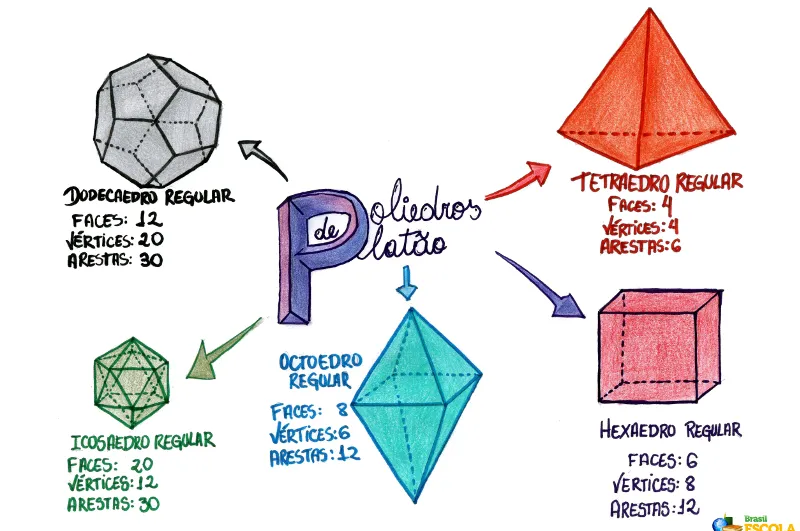 Poliedros
de
Platão
DODECAEDRO REGULAR
FACES: 12
VÉRTICES: 20
ARESTAS: 30
TETRAEDRO REGULAR
FACES: 4
VÉRTICES: 4
ARESTAS: 6
ICOSAEDRO REGULAR
FACES: 20
VÉRTICES: 12
ARESTAS: 30
OCTOEDRO
REGULAR
FACES: 8
VÉRTICES: 6
ARESTAS: 12
HEXAEDRO REGULAR
FACES: 6
VERTICES: 8
ARESTAS: 12
Brasil
ESCOLA